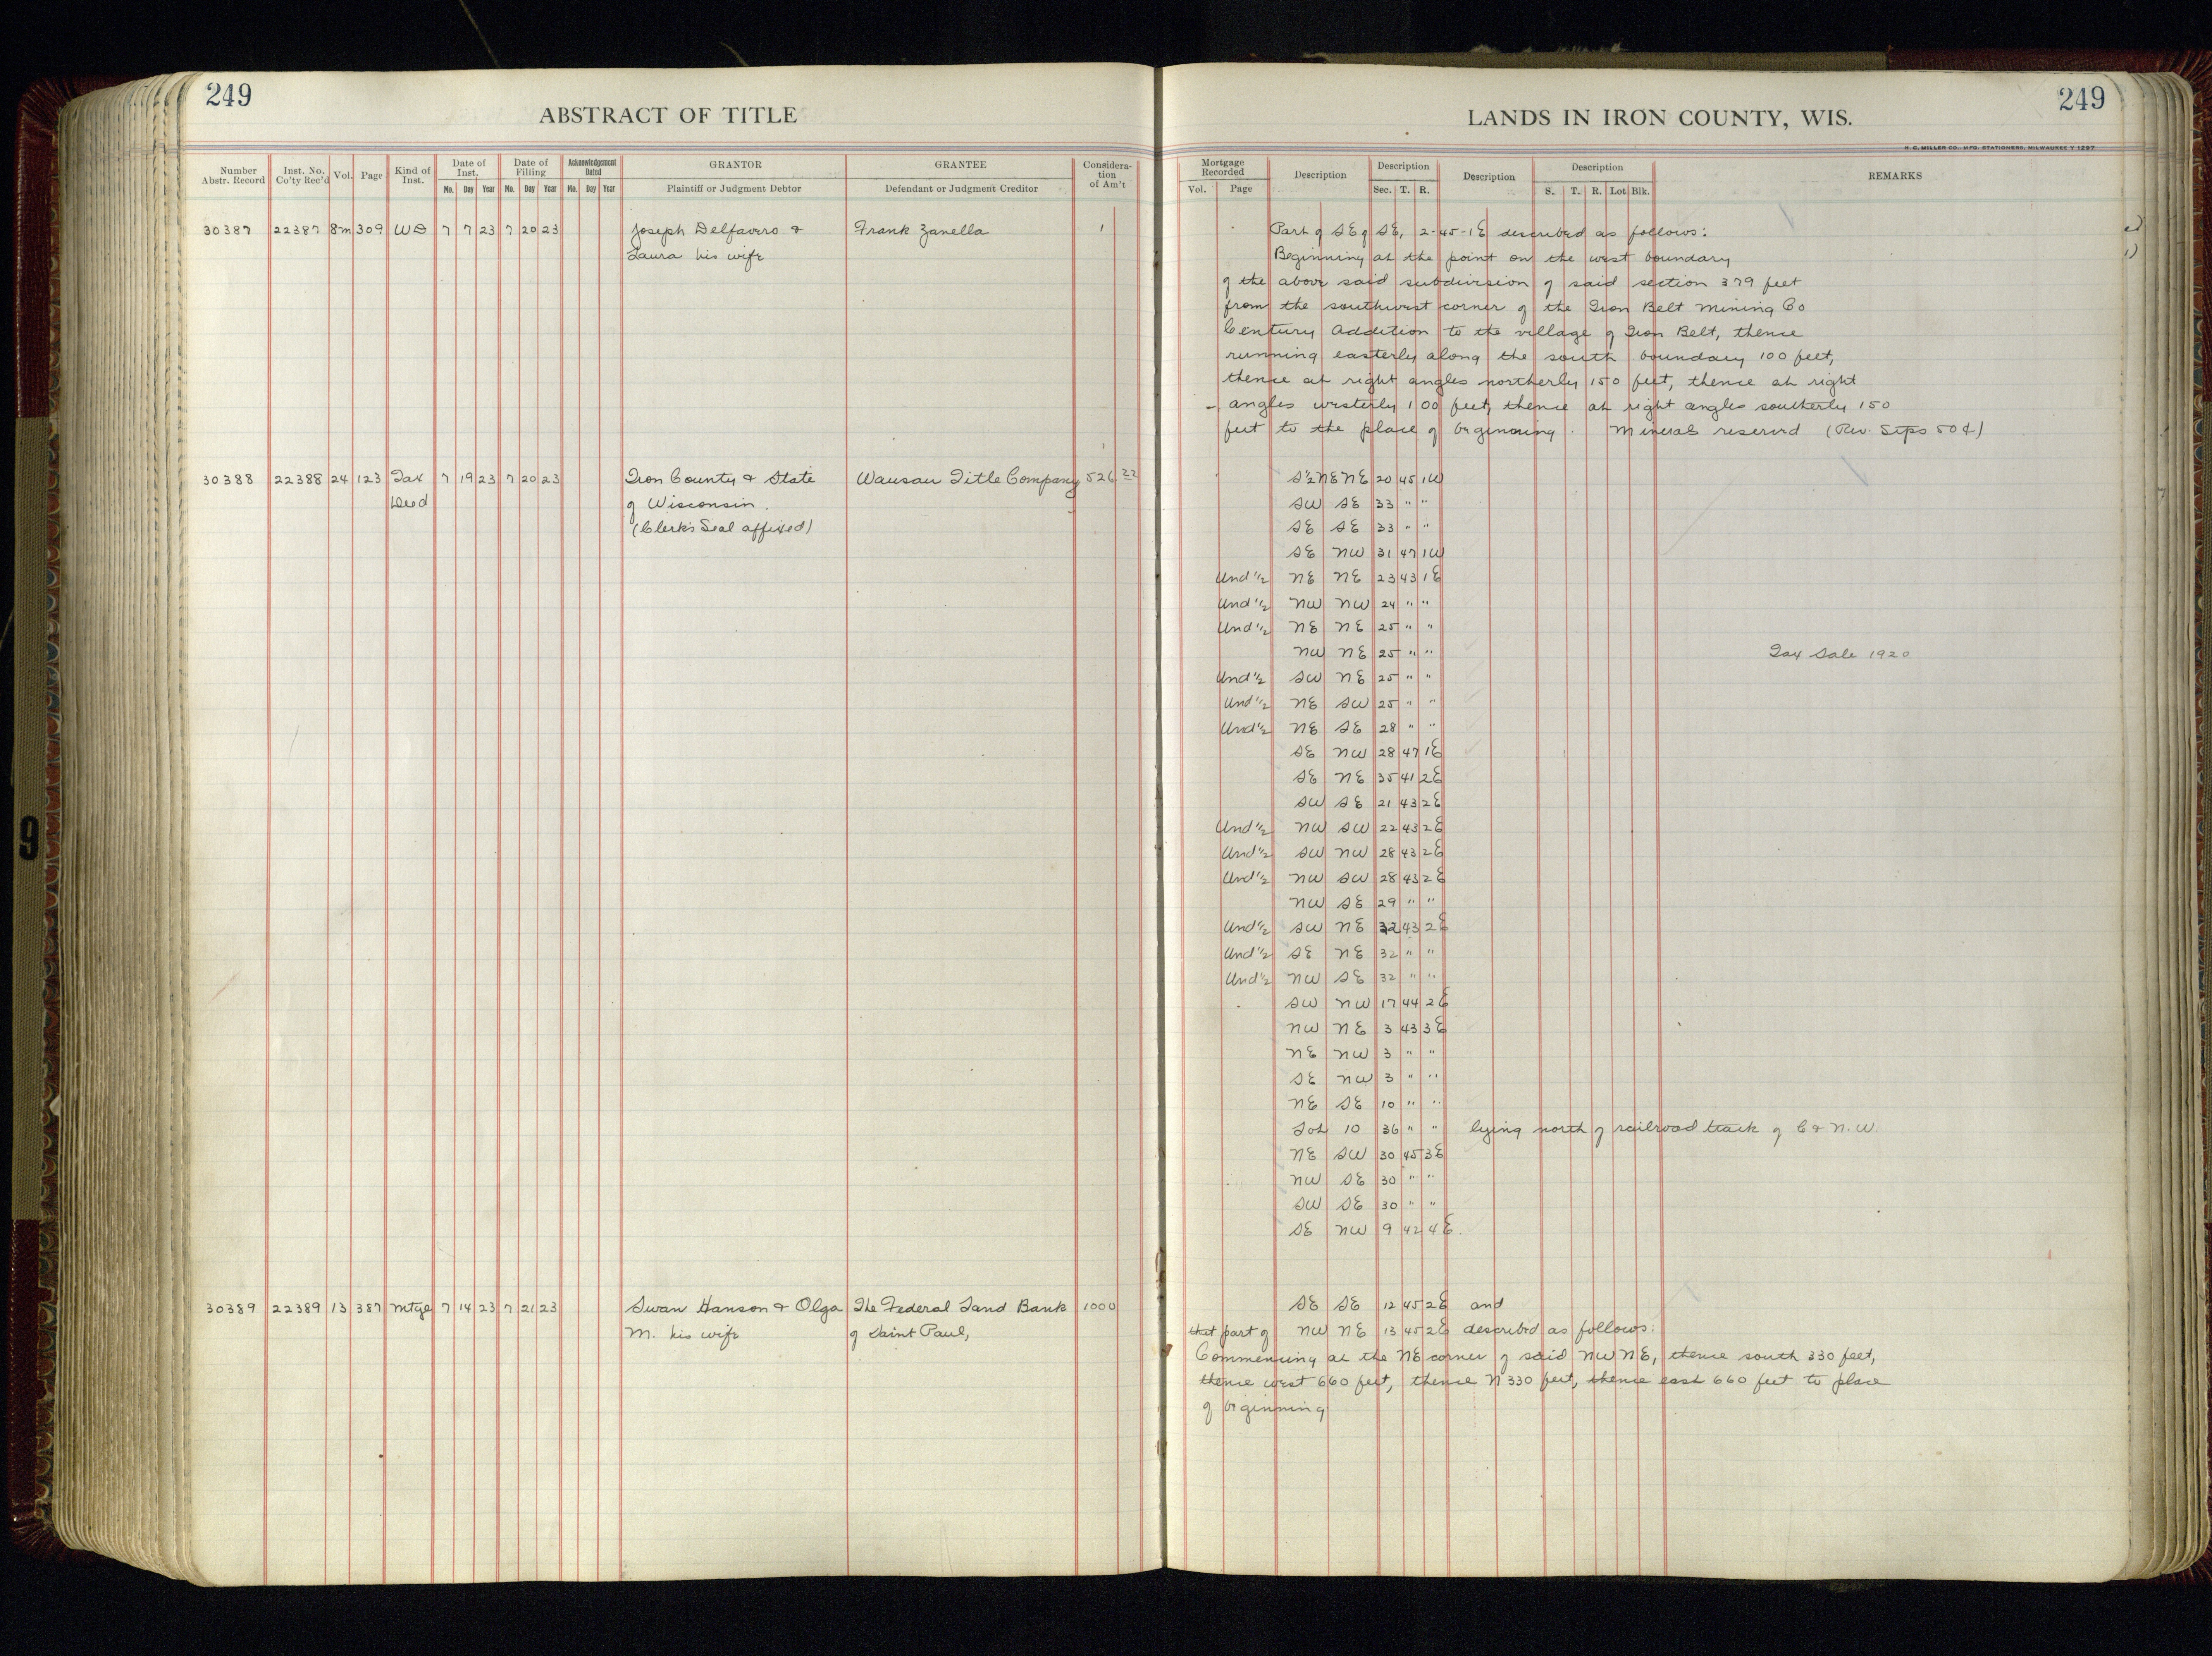 249
ABSTRACT OF TITLE
Number Abstr. Record | Inst. No. Co'ty Rec'd | Vol. | Page | Kind of Inst. | Date of Inst. Mo. Day Year | Date of Filling Mo. Day Year | Acknowledgement Dated Mo. Day Year | GRANTOR Plaintiff or Judgment Debtor | GRANTEE Defendant or Judgment Creditor | Considera-tion of Am't
30387 22387 8m 309 WD 7 7 23 7 20 23 Joseph Delfavero & Frank Zanella 1
Laura his wife
30388 22388 24 123 Tax 7 19 23 7 20 23 Iron County & State Wausau Title Company 526 22
Deed of Wisconsin.
(Clerk's Seal affixed)
30389 22389 13 387 Mtge 7 14 23 7 21 23 Swan Hanson & Olga The Federal Land Bank 1000
M. his wife of Saint Paul,
LANDS IN IRON COUNTY, WIS.
249
H. C. MILLER CO., MFG. STATIONERS, MILWAUKEE
Mortgage Recorded Vol. Page | Description | Description Sec. T. R. | Description | Description S. T. R. Lot Blk. | REMARKS
Part of SE of SE, 2-45-1E described as follows:
Beginning at the point on the west boundary
of the above said subdivision of said section 379 feet
from the southwest corner of the Iron Belt Mining Co
Century Addition to the village of Iron Belt, thence
running easterly along the south boundary 100 feet,
thence at right angles northerly 150 feet, thence at right
angles westerly 100 feet, thence at right angles southerly 150
feet to the place of beginning. Minerals reserved (Rev. Stps 50¢)
S½ NE NE 20 45 1W
SW SE 33 " "
SE SE 33 " "
SE NW 31 47 1W
Und ½ NE NE 23 43 1E
Und ½ NW NW 24 " "
Und ½ NE NE 25 " "
NW NE 25 " " Tax Sale 1920
Und ½ SW NE 25 " "
Und ½ NE SW 25 " "
Und ½ NE SE 28 " "
SE NW 28 47 1E
SE NE 35 41 2E
SW SE 21 43 2E
Und ½ NW SW 22 43 2E
Und ½ SW NW 28 43 2E
Und ½ NW SW 28 43 2E
NW SE 29 " "
Und ½ SW NE 32 43 2E
Und ½ SE NE 32 " "
Und ½ NW SE 32 " "
SW NW 17 44 2E
NW NE 3 43 3E
NE NW 3 " "
SE NW 3 " "
NE SE 10 " "
Lot 10 36 " " lying north of railroad track of C & N.W.
NE SW 30 45 3E
NW SE 30 " "
SW SE 30 " "
SE NW 9 42 4E.
SE SE 12 45 2E and
that part of NW NE 13 45 2E described as follows:
Commencing at the NE corner of said NW NE, thence south 330 feet,
thence west 660 feet, thence N 330 feet, thence east 660 feet to place
of beginning
9